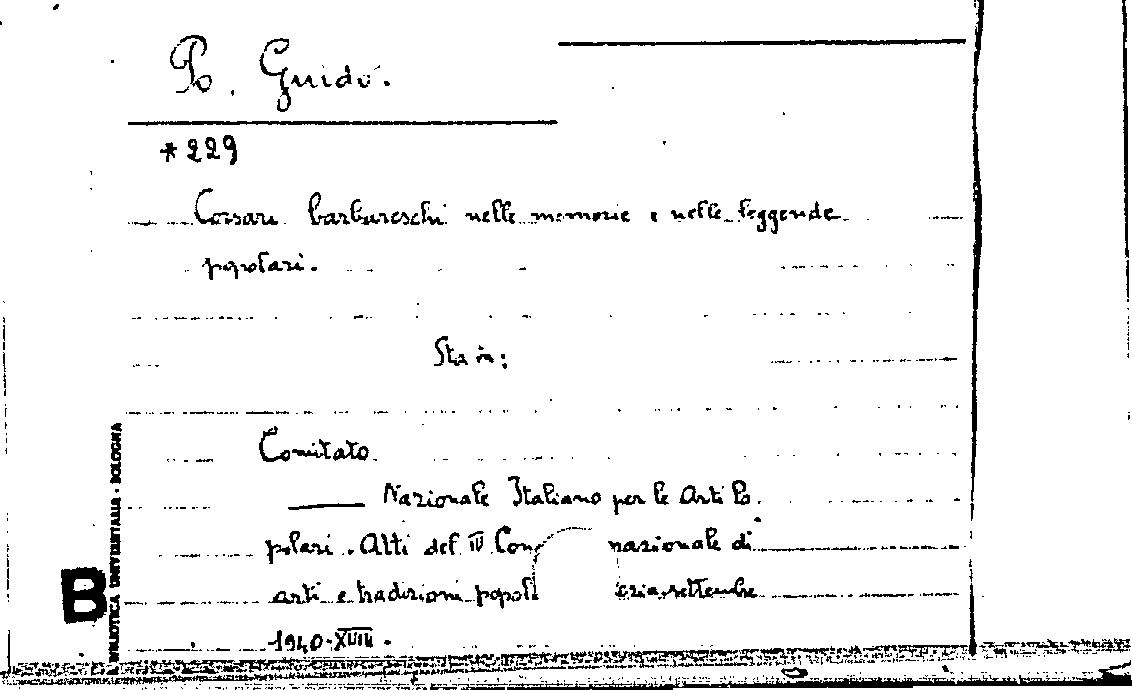 Po. Guido.
*229
Corsari barbareschi nelle memorie e nelle leggende
popolari.
Sta in:
Comitato
Nazionale Italiano per le Arti Po
polari. Atti del IV Con nazionale di
arti e tradizioni popol ezia, settembre
1940-XVIII.
B
BIBLIOTECA UNIVERSITARIA - BOLOGNA